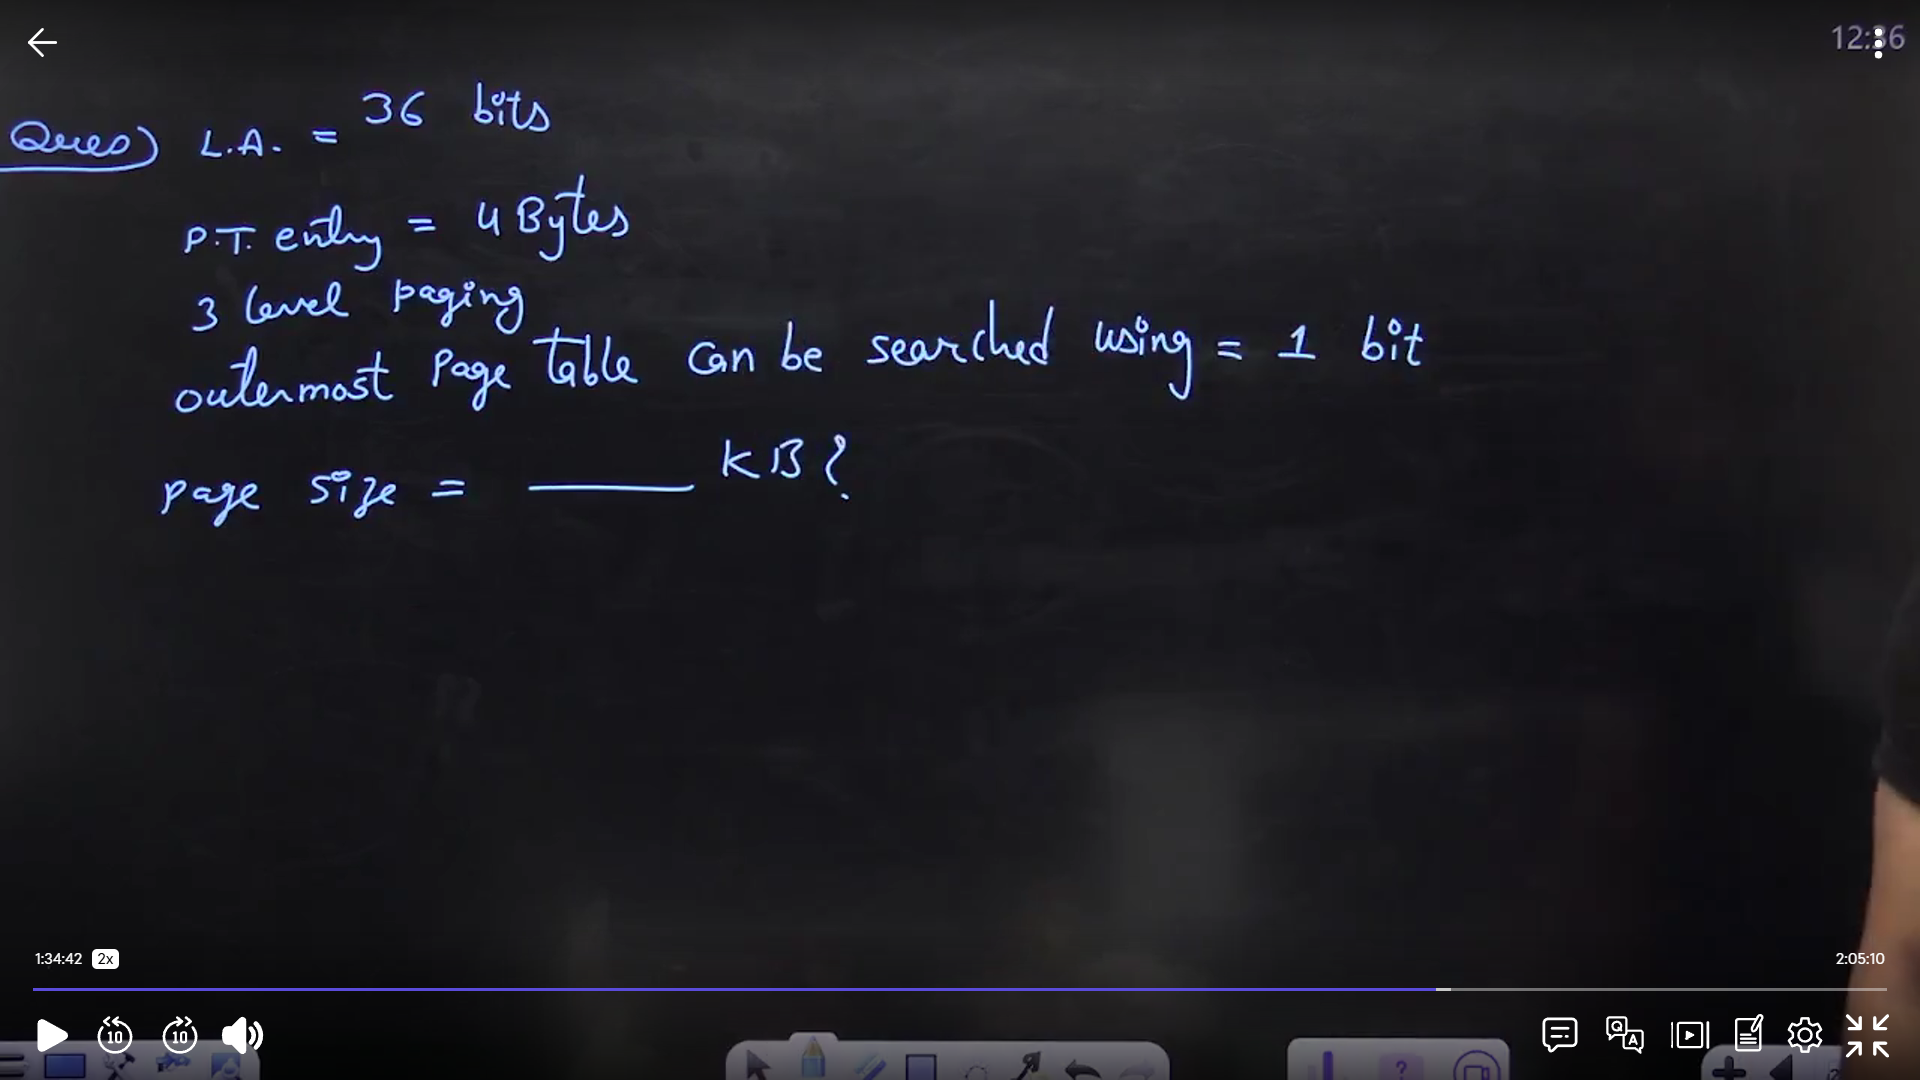 12:36
Ques) L.A. = 36 bits
P.T. entry = 4 Bytes
3 level paging
outermost Page Table can be searched using = 1 bit
page size = ______ KB?
1:34:42 2x
2:05:10
10 10